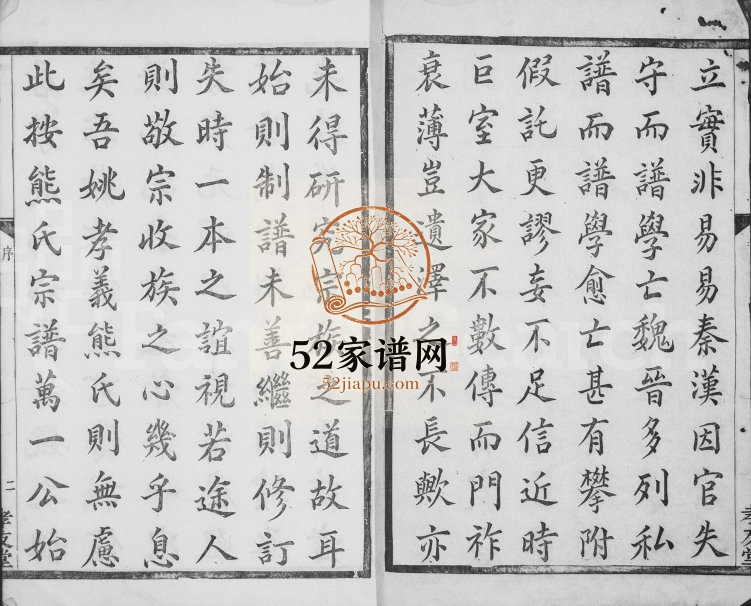 立實非易易秦漢因官失
守而譜學亡魏晉多列私
譜而譜學愈亡甚有攀附
假託更謬妄不足信近時
巨室大家不數傳而門祚
衰薄豈遺澤之不長歟亦
未得研究宗族之道故耳
始則制譜未善繼則修訂
失時一本之誼視若途人
則敬宗收族之心幾乎息
矣吾姚孝義熊氏則無慮
此按熊氏宗譜萬一公始
序
二
孝友堂
52家谱网
52jiapu.com